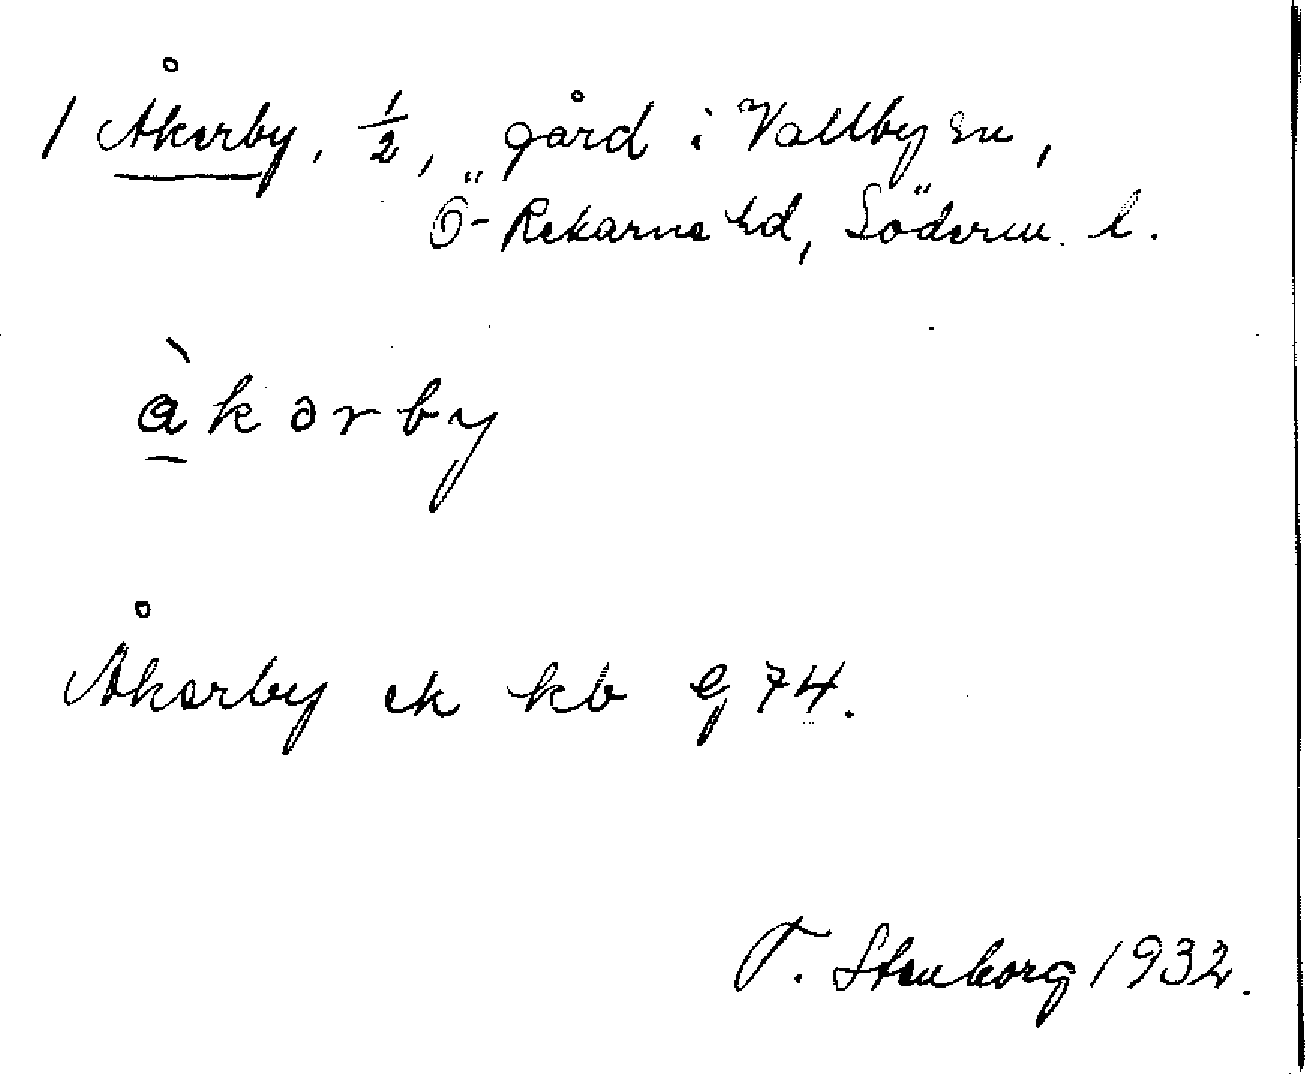 1 Åkerby, 1/2, gård i Vallby sn,
Ö-Rekarne hd, Söderm. l.
àkərby
Åkerby ek kb g 74.
T. Stenborg 1932.